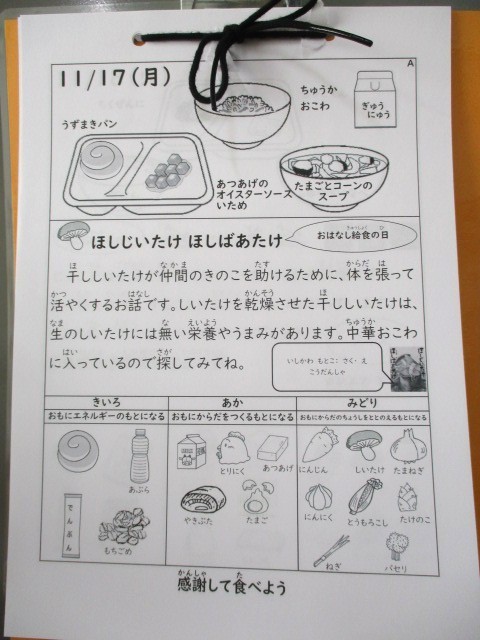 A
11/17(月)
うずまきパン
ちゅうか
おこわ
ぎゅう
にゅう
あつあげの
オイスターソース
いため
たまごとコーンの
スープ
ほしじいたけ ほしばあたけ
おはなし給食の日
干ししいたけが仲間のきのこを助けるために、体を張って
活やくするお話です。しいたけを乾燥させた干ししいたけは、
生のしいたけには無い栄養やうまみがあります。中華おこわ
に入っているので探してみてね。
いしかわ もとこ：さく・え
こうだんしゃ
きいろ
おもにエネルギーのもとになる
あぶら
でんぷん
もちごめ
あか
おもにからだをつくるもとになる
とりにく
あつあげ
やきぶた
たまご
みどり
おもにからだのちょうしをととのえるもとになる
にんじん
しいたけ
たまねぎ
にんにく
とうもろこし
たけのこ
ねぎ
パセリ
感謝して食べよう